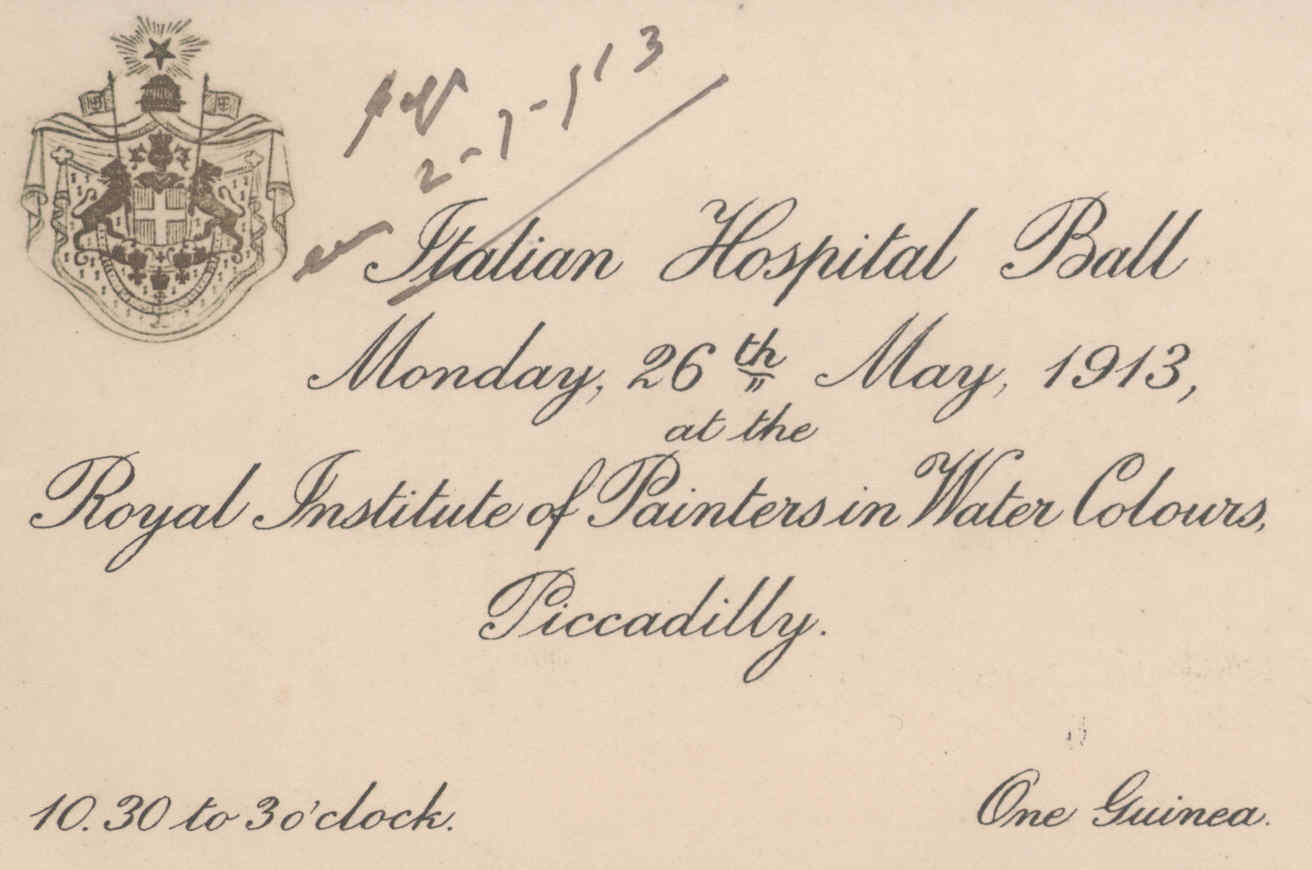 Italian Hospital Ball
Monday, 26th May, 1913,
at the
Royal Institute of Painters in Water Colours,
Piccadilly.
10.30 to 3 o'clock.
One Guinea.